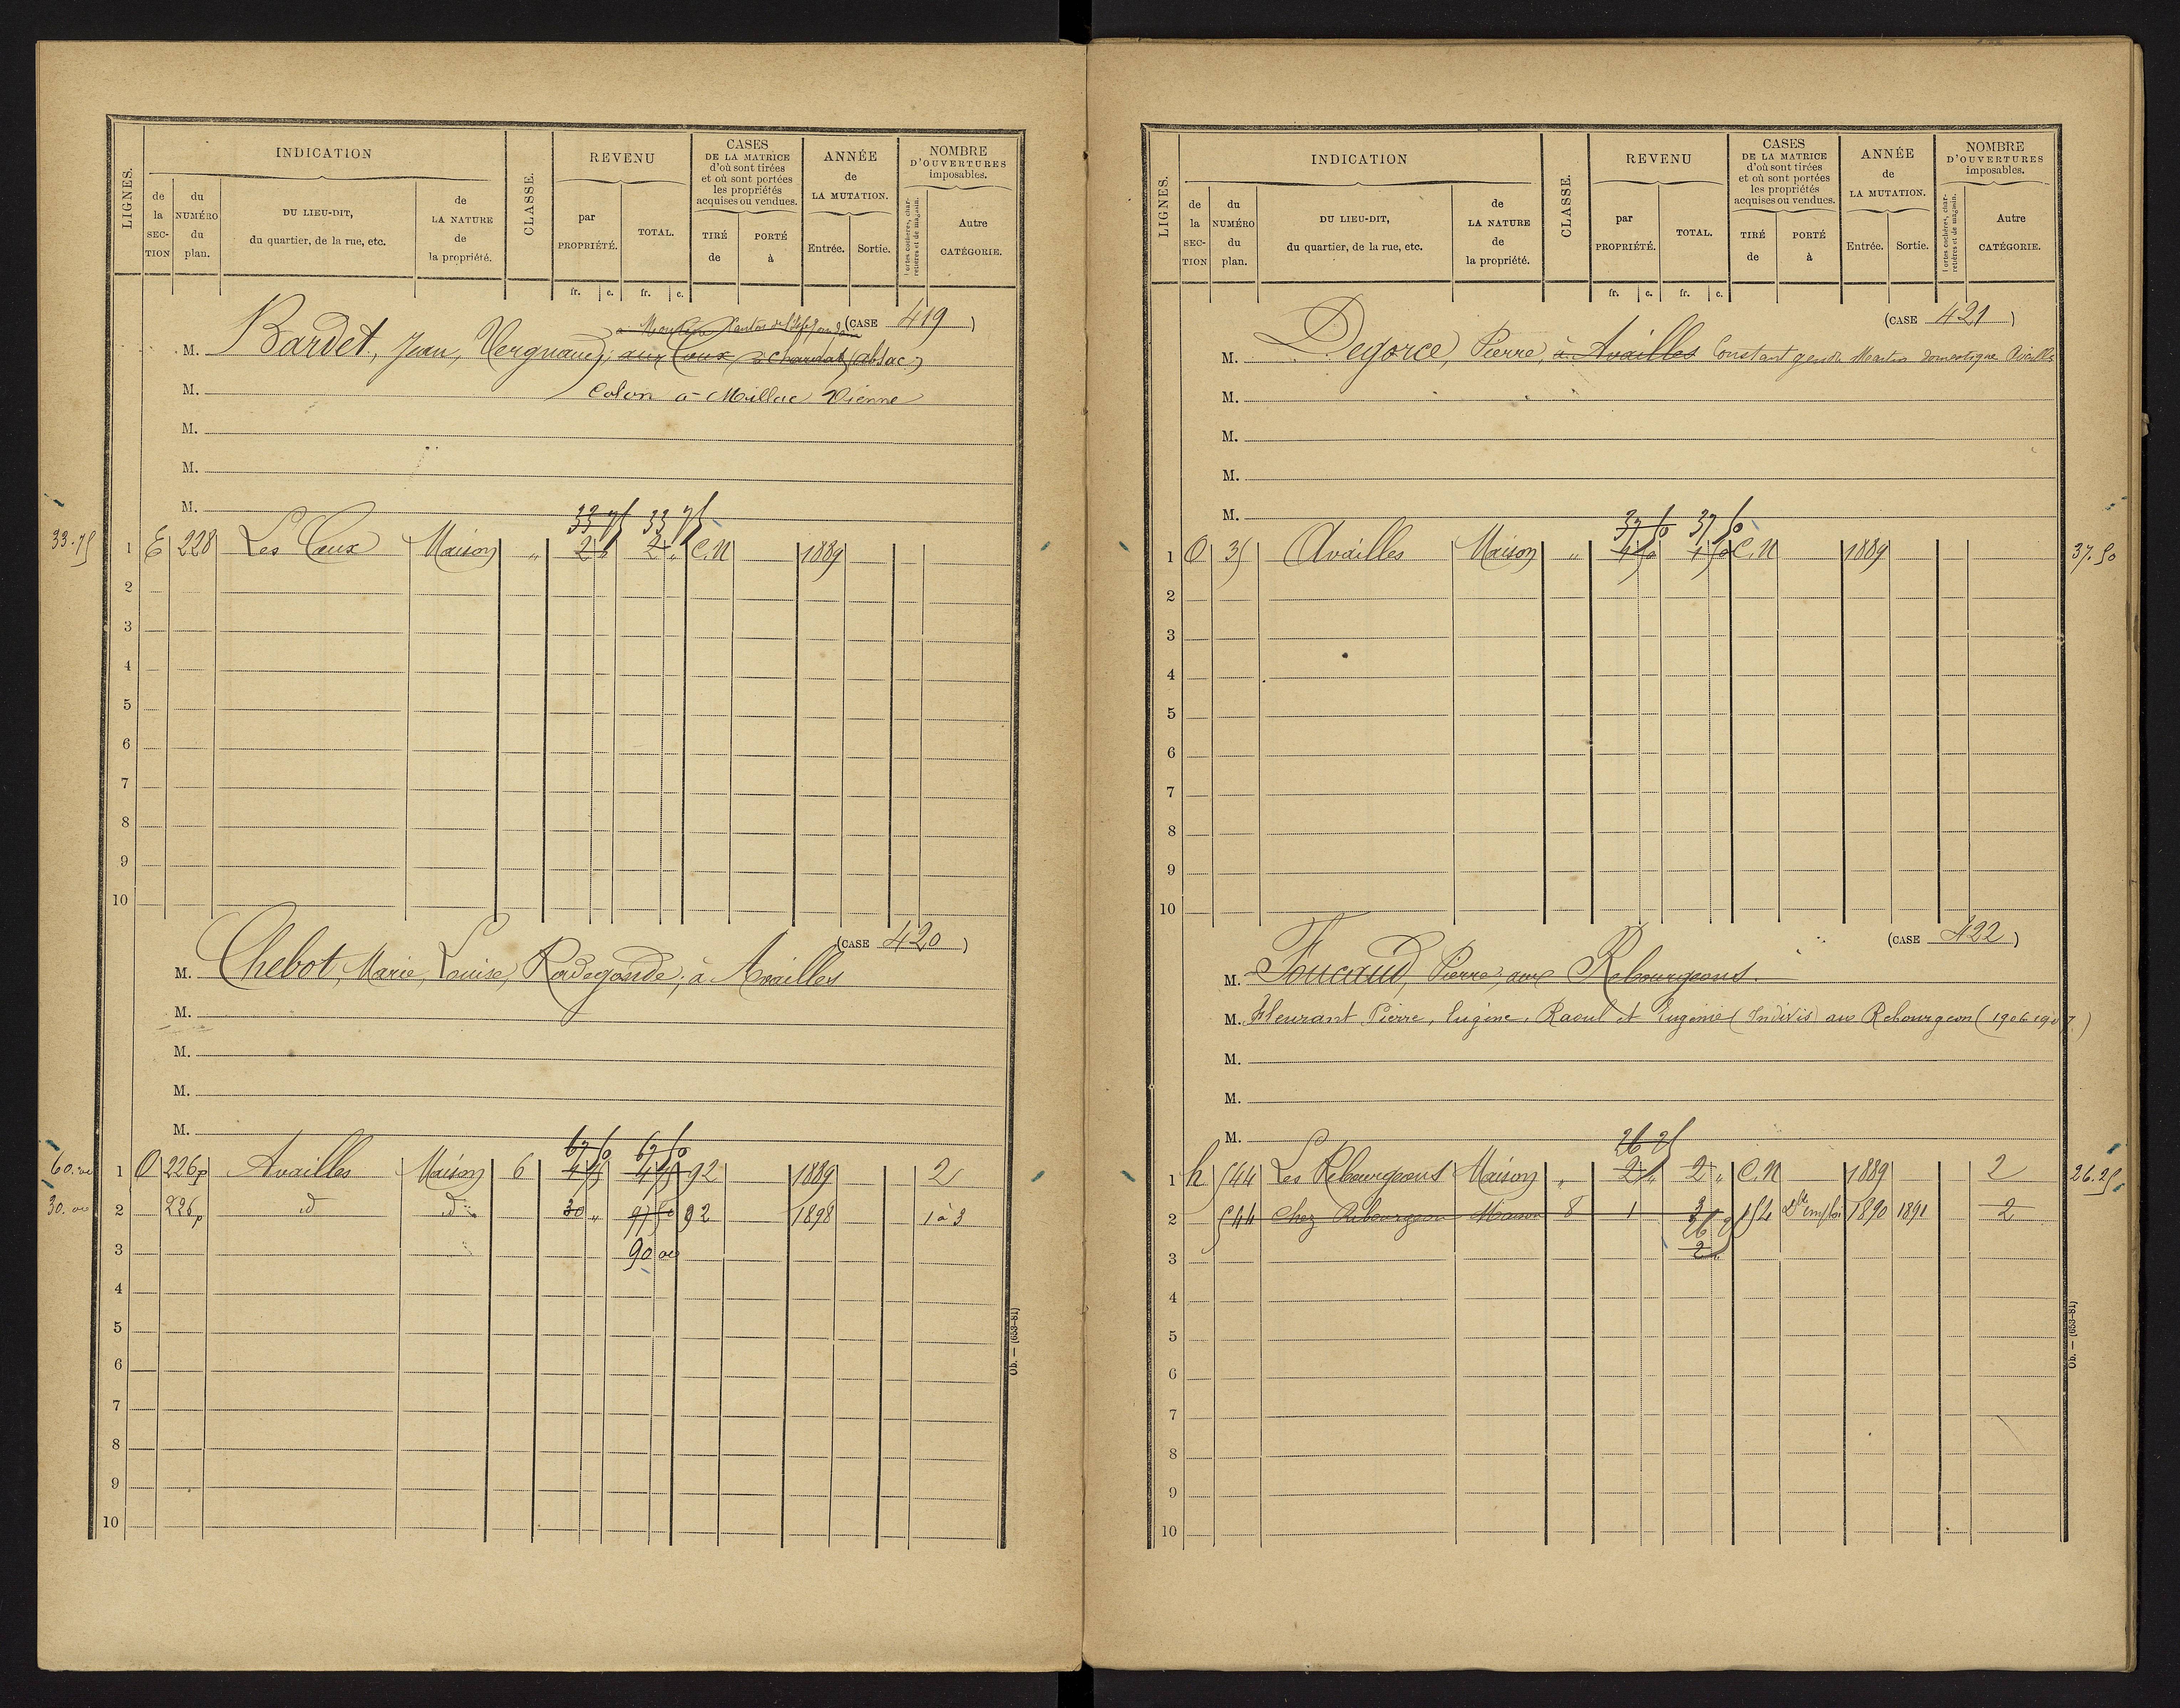 LIGNES.
INDICATION
de la SECTION
du NUMÉRO du plan.
DU LIEU-DIT, du quartier, de la rue, etc.
de LA NATURE de la propriété.
CLASSE.
REVENU
par PROPRIÉTÉ.
TOTAL.
fr. c. fr. c.
CASES DE LA MATRICE d'où sont tirées et où sont portées les propriétés acquises ou vendues.
TIRÉ de
PORTÉ à
ANNÉE de LA MUTATION.
Entrée. Sortie.
NOMBRE D'OUVERTURES imposables.
Portes cochères, charretières et de magasin.
Autre CATÉGORIE.
(CASE 419)
M. Bardet, Jean, Vergnaud, aux Coux à Chardat (ablac)
M. Colon à Millac Vienne
M.
M.
M.
33 75 33 75
33.75 1 E 228 Les Coux Maison " 2 " 2 " C.N 1889
2
3
4
5
6
7
8
9
10
(CASE 420)
M. Chebot, Marie, Louise, Radegonde, à Availles
M.
M.
M.
M.
67 50 67 50
60.00 1 O 226p Availles Maison 6 4 75 4 75 92 1889 2
30.00 2 226p d d 30 " 97 50 92 1898 1 à 3
3 90 00
4
5
6
7
8
9
10
Ob. — (653-81)
LIGNES.
INDICATION
de la SECTION
du NUMÉRO du plan.
DU LIEU-DIT, du quartier, de la rue, etc.
de LA NATURE de la propriété.
CLASSE.
REVENU
par PROPRIÉTÉ.
TOTAL.
fr. c. fr. c.
CASES DE LA MATRICE d'où sont tirées et où sont portées les propriétés acquises ou vendues.
TIRÉ de
PORTÉ à
ANNÉE de LA MUTATION.
Entrée. Sortie.
NOMBRE D'OUVERTURES imposables.
Portes cochères, charretières et de magasin.
Autre CATÉGORIE.
(CASE 421)
M. Degorce, Pierre, à Availles Constant gendre Martin domestique Availles
M.
M.
M.
M.
37 50 37 50
1 O 35 Availles Maison " 4 50 4 50 C.N 1889 37.50
2
3
4
5
6
7
8
9
10
(CASE 422)
M. Foucaud, Pierre, aux Rebourgeons.
M. Fleurant Pierre, Eugène, Raoul et Eugénie (Indivis) aux Rebourgeon (1906 1907)
M.
M.
M.
26 25
1 h 544 Les Rebourgeons Maison " 2 " 2 " C.N 1889 2 26.25
2 544 Chez Rebourgeon Maison 8 1 3 154 Dble emploi 1890 1891 2
26 25
3 2 "
4
5
6
7
8
9
10
Ob. — (653-81)